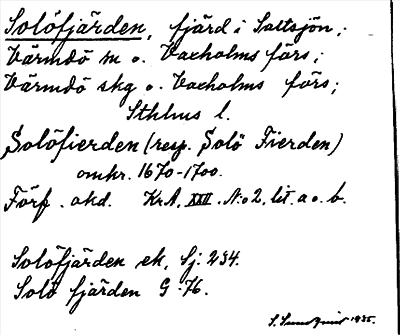 Solöfjärden, fjärd i Saltsjön;
Värmdö sn o. Vaxholms förs;
Värmdö skg o. Vaxholms förs;
Sthlms l.
Solöfierden (resp. Solö Fierden)
omkr. 1670-1700.
Förf. okd. KrA, XXII. N:o 2, lit. a o. b.
Solöfjärden ek, Sj. 234.
Solö fjärden G-76.
S. 1935.